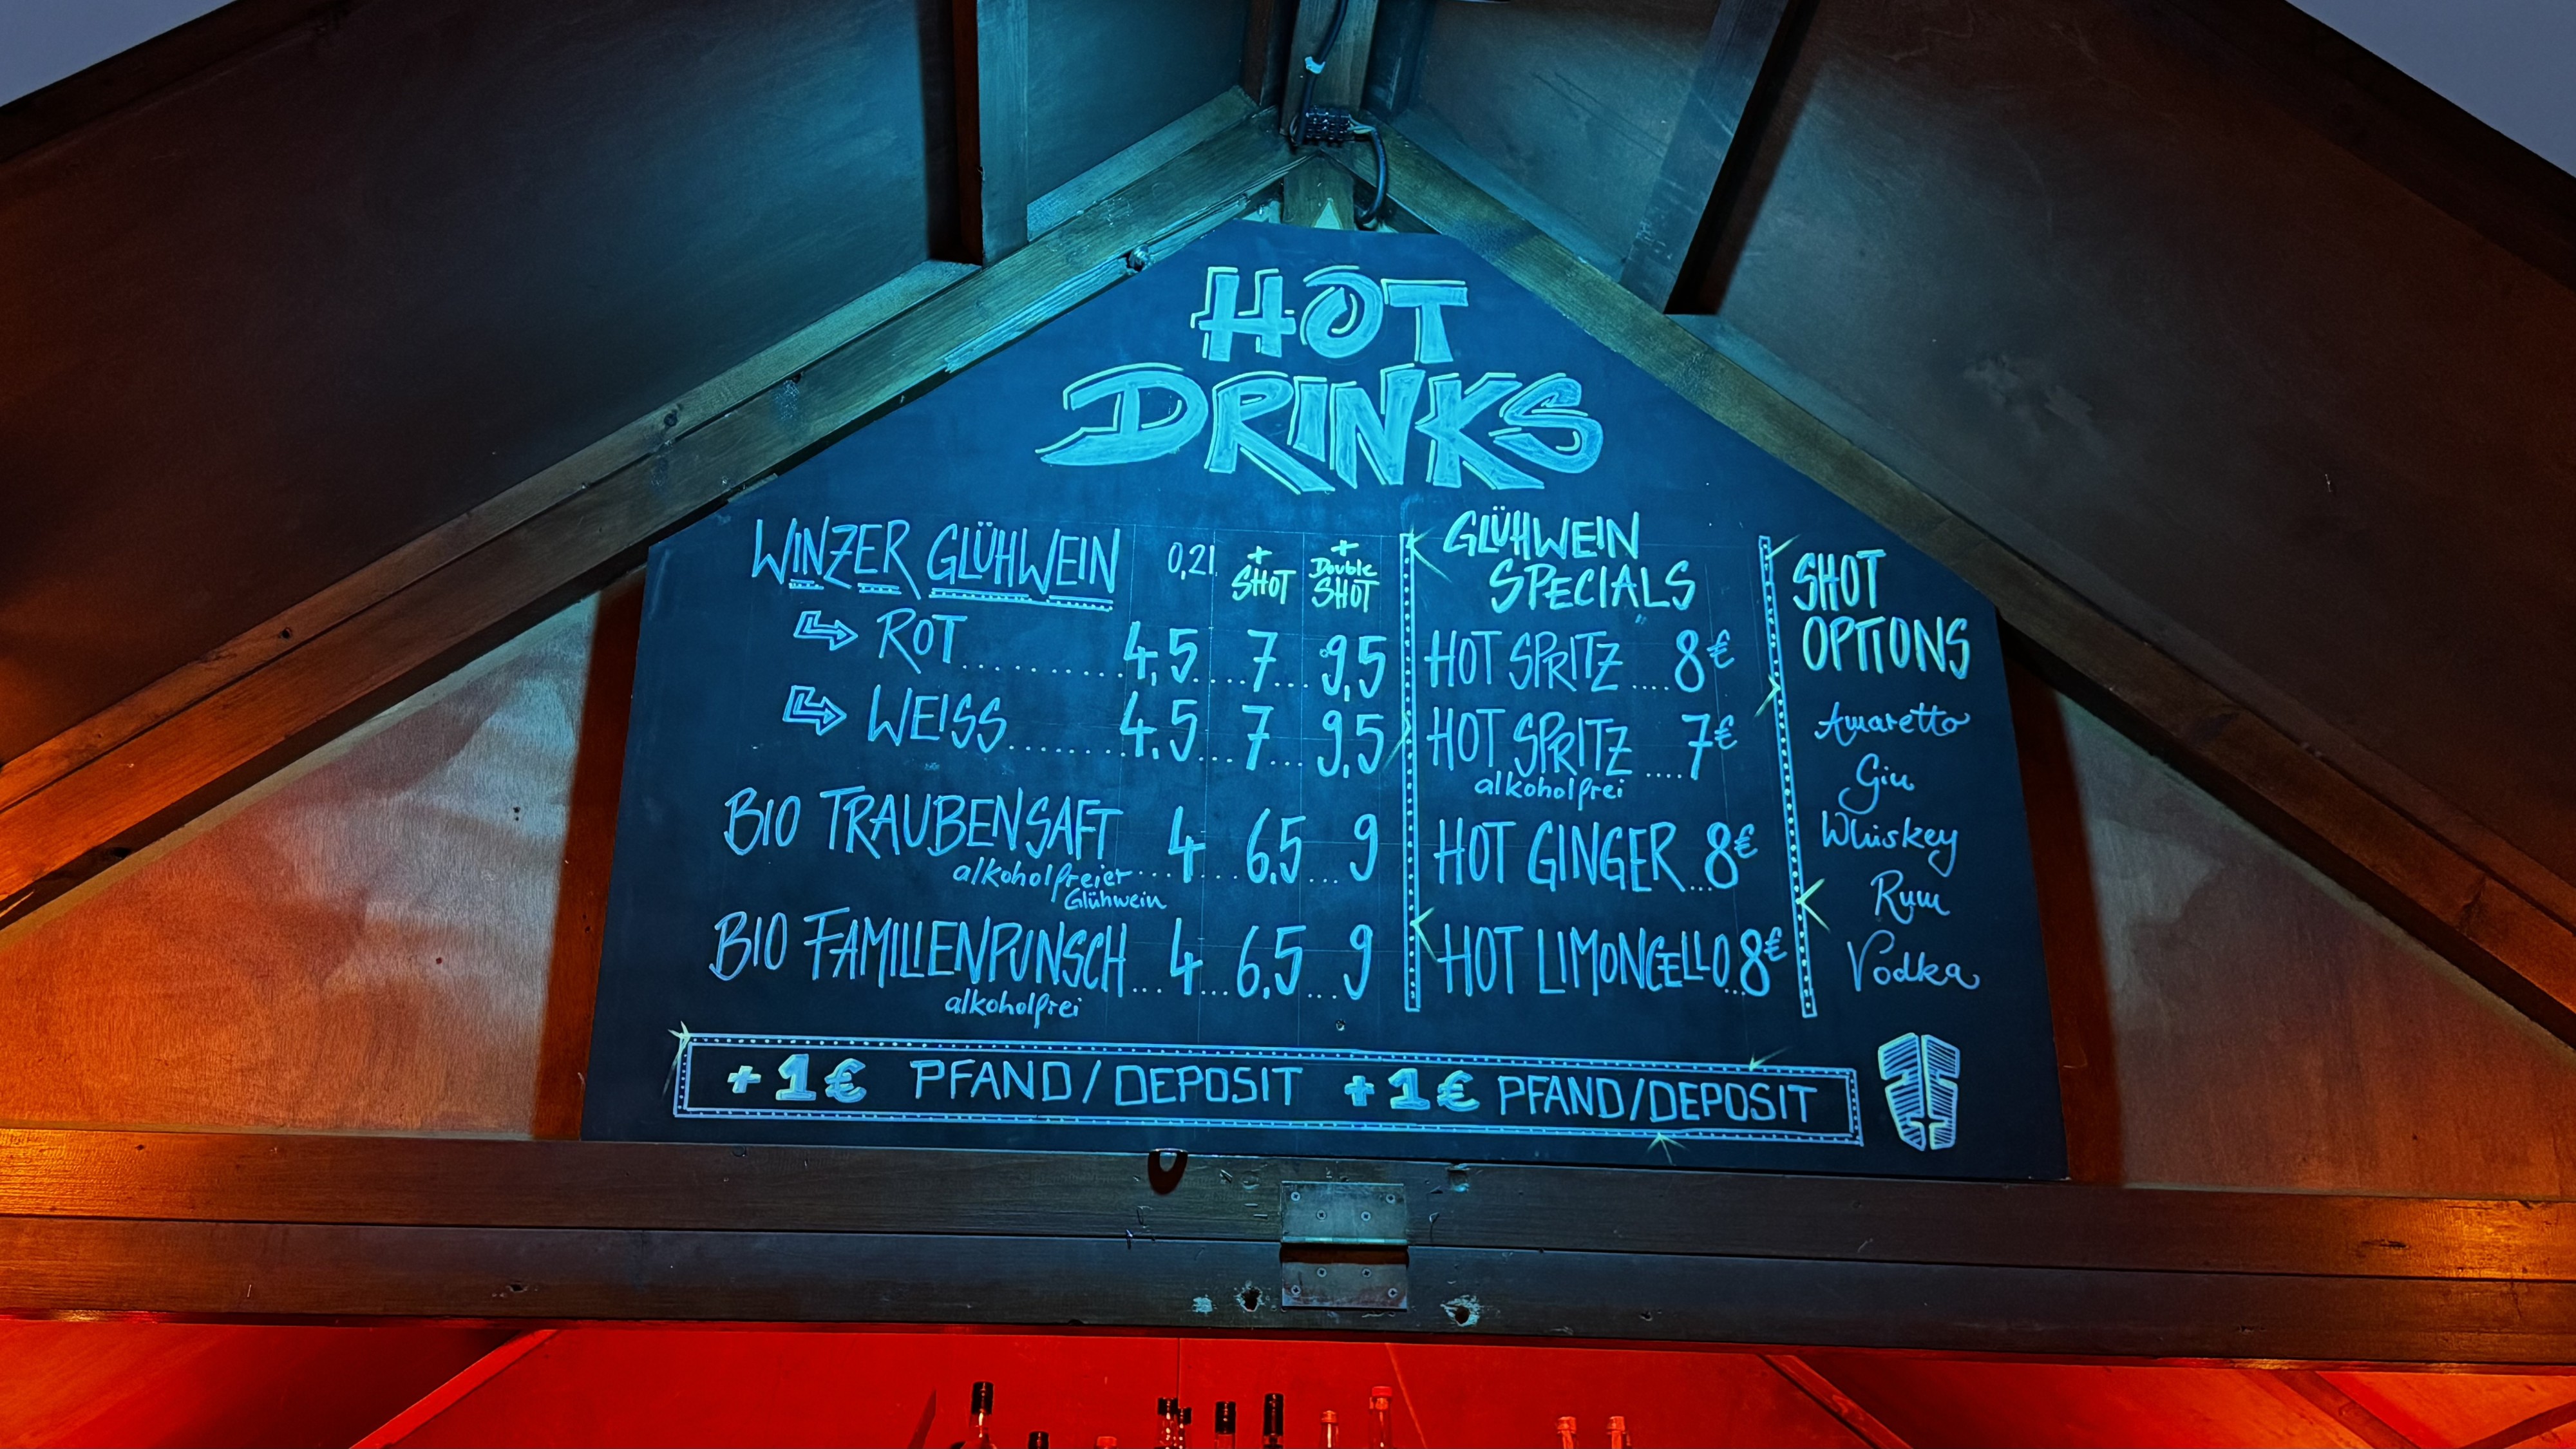 HOT
DRINKS
WINZER GLÜHWEIN 0,2l + SHOT + Double SHOT
ROT 4,5 7 9,5
WEISS 4,5 7 9,5
BIO TRAUBENSAFT 4 6,5 9
alkoholfreier
Glühwein
BIO FAMILIENPUNSCH 4 6,5 9
alkoholfrei
GLÜHWEIN
SPECIALS
HOT SPRITZ 8€
HOT SPRITZ 7€
alkoholfrei
HOT GINGER 8€
HOT LIMONCELLO 8€
SHOT
OPTIONS
Amaretto
Gin
Whiskey
Rum
Vodka
+1€ PFAND/DEPOSIT +1€ PFAND/DEPOSIT